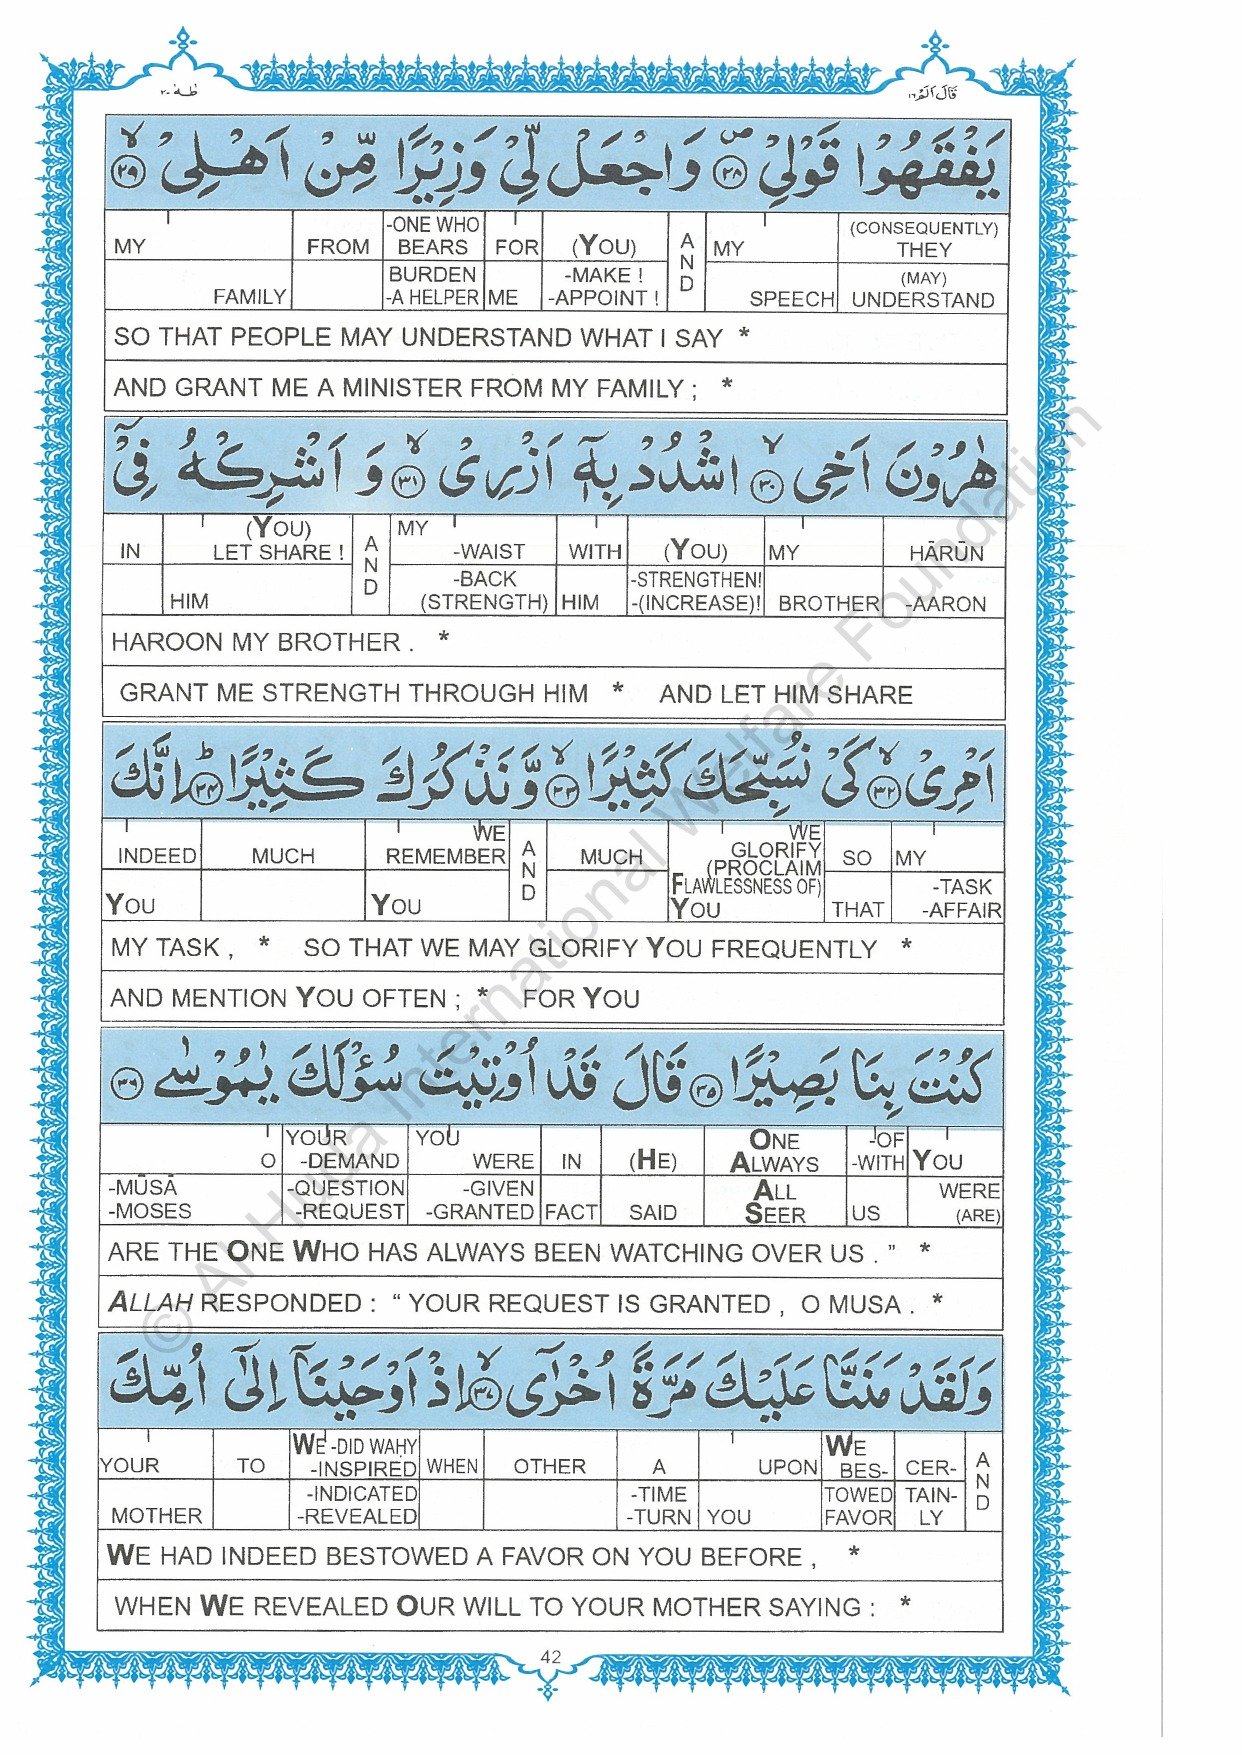 طٰهٰ ٢٠
قَالَ اَلَمْ ١٦
يَفْقَهُوْا قَوْلِيْ ۪﴿٢٨﴾ وَاجْعَلْ لِّيْ وَزِيْرًا مِّنْ اَهْلِيْ ۙ﴿٢٩﴾
MY FROM -ONE WHO BEARS FOR (YOU) AND MY (CONSEQUENTLY) THEY
FAMILY BURDEN -A HELPER ME -MAKE ! -APPOINT ! SPEECH (MAY) UNDERSTAND
SO THAT PEOPLE MAY UNDERSTAND WHAT I SAY *
AND GRANT ME A MINISTER FROM MY FAMILY ; *
هٰرُوْنَ اَخِي ۙ﴿٣٠﴾ اشْدُدْ بِهٖٓ اَزْرِيْ ۙ﴿٣١﴾ وَ اَشْرِكْهُ فِيْٓ
IN (YOU) LET SHARE ! AND MY -WAIST WITH (YOU) MY HĀRŪN
HIM -BACK (STRENGTH) HIM -STRENGTHEN! -(INCREASE)! BROTHER -AARON
HAROON MY BROTHER . *
GRANT ME STRENGTH THROUGH HIM * AND LET HIM SHARE
اَمْرِيْ ۙ﴿٣٢﴾ كَيْ نُسَبِّحَكَ كَثِيْرًا ۙ﴿٣٣﴾ وَّنَذْكُرَكَ كَثِيْرًا ؕ﴿٣٤﴾ اِنَّكَ
INDEED MUCH WE REMEMBER AND MUCH WE GLORIFY (PROCLAIM SO MY
YOU YOU FLAWLESSNESS OF) YOU THAT -TASK -AFFAIR
MY TASK , * SO THAT WE MAY GLORIFY YOU FREQUENTLY *
AND MENTION YOU OFTEN ; * FOR YOU
كُنْتَ بِنَا بَصِيْرًا ﴿٣٥﴾ قَالَ قَدْ اُوْتِيْتَ سُؤْلَكَ يٰمُوْسٰى ﴿٣٦﴾
O YOUR -DEMAND YOU WERE IN (HE) ONE ALWAYS -OF -WITH YOU
-MŪSĀ -MOSES -QUESTION -REQUEST -GIVEN -GRANTED FACT SAID ALL SEER US WERE (ARE)
ARE THE ONE WHO HAS ALWAYS BEEN WATCHING OVER US . ” *
ALLAH RESPONDED : “ YOUR REQUEST IS GRANTED , O MUSA . *
وَلَقَدْ مَنَنَّا عَلَيْكَ مَرَّةً اُخْرٰٓى ۙ﴿٣٧﴾ اِذْ اَوْحَيْنَآ اِلٰٓى اُمِّكَ
YOUR TO WE -DID WAHY -INSPIRED WHEN OTHER A UPON WE BES- CER- AND
MOTHER -INDICATED -REVEALED -TIME -TURN YOU TOWED FAVOR TAIN- LY
WE HAD INDEED BESTOWED A FAVOR ON YOU BEFORE , *
WHEN WE REVEALED OUR WILL TO YOUR MOTHER SAYING : *
42
© Al-Huda International Welfare Foundation